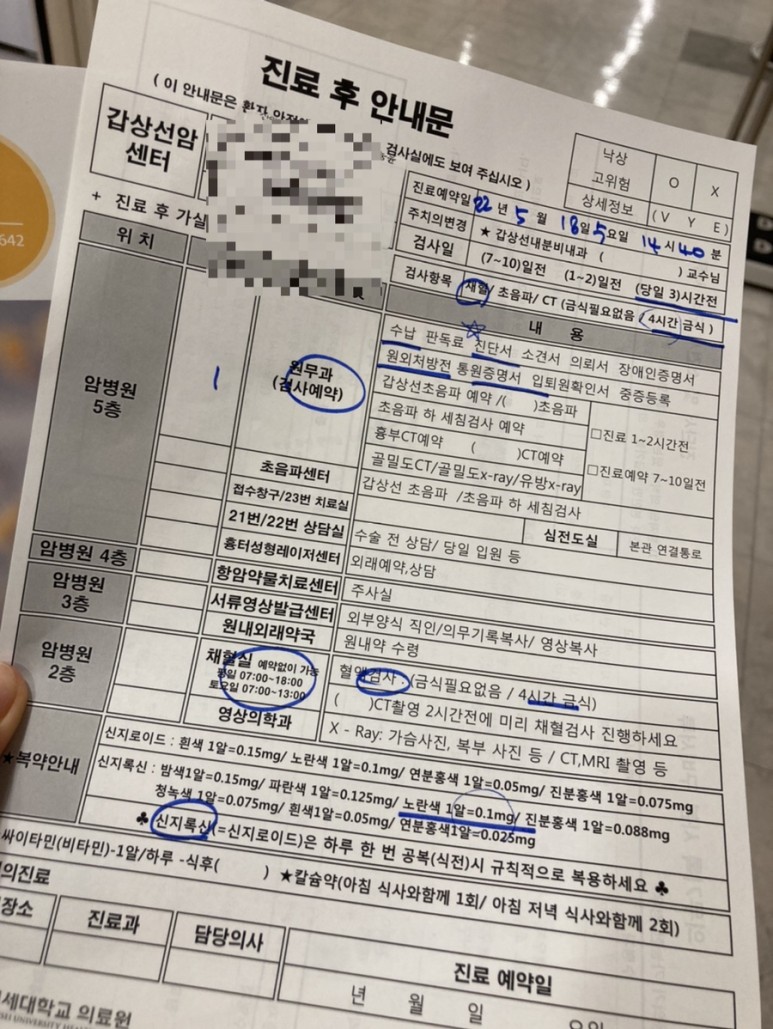 진료 후 안내문
( 이 안내문은 환자
검사실에도 보여 주십시오 )
갑상선암
센터
낙상
고위험
상세정보
O
X
(V Y E)
진료예약일 22년 5월 18일 요일 14시 40분
주치의변경
★ 갑상선내분비내과 ( ) 교수님
검사일
(7~10)일전 (1~2)일전 (당일 3)시간전
검사항목
채혈/ 초음파/ CT (금식필요없음 / 4시간 금식 )
+ 진료 후 가실
위 치
내 용
암병원
5층
1
원무과
(검사예약)
수납 판독료 진단서 소견서 의뢰서 장애인증명서
원외처방전 통원증명서 입퇴원확인서 중증등록
갑상선초음파 예약 /( )초음파
초음파 하 세침검사 예약
흉부CT예약 ( )CT예약
골밀도CT/골밀도x-ray/유방x-ray
□진료 1~2시간전
□진료예약 7~10일전
초음파센터
갑상선 초음파 /초음파 하 세침검사
접수창구/23번 치료실
심전도실
본관 연결통로
21번/22번 상담실
수술 전 상담/ 당일 입원 등
암병원 4층
흉터성형레이저센터
외래예약,상담
암병원
3층
항암약물치료센터
주사실
서류영상발급센터
외부양식 직인/의무기록복사/ 영상복사
원내외래약국
원내약 수령
암병원
2층
채혈실 예약없이 가능
평일 07:00~18:00
토요일 07:00~13:00
혈액검사 (금식필요없음 / 4시간 금식)
( )CT촬영 2시간전에 미리 채혈검사 진행하세요
영상의학과
X - Ray: 가슴사진, 복부 사진 등 / CT,MRI 촬영 등
★복약안내
신지로이드 : 흰색 1알=0.15mg/ 노란색 1알=0.1mg/ 연분홍색 1알=0.05mg/ 진분홍색 1알=0.075mg
신지록신 : 밤색1알=0.15mg/ 파란색 1알=0.125mg/ 노란색 1알=0.1mg/ 진분홍색 1알=0.088mg
청녹색 1알=0.075mg/ 흰색1알=0.05mg/ 연분홍색1알=0.025mg
♣ 신지록신(=신지로이드)은 하루 한 번 공복(식전)시 규칙적으로 복용하세요 ♣
싸이타민(비타민)-1알/하루 -식후( ) ★칼슘약(아침 식사와함께 1회/ 아침 저녁 식사와함께 2회)
의진료
장소
진료과
담당의사
진료 예약일
년 월 일 요일
세대학교 의료원
642